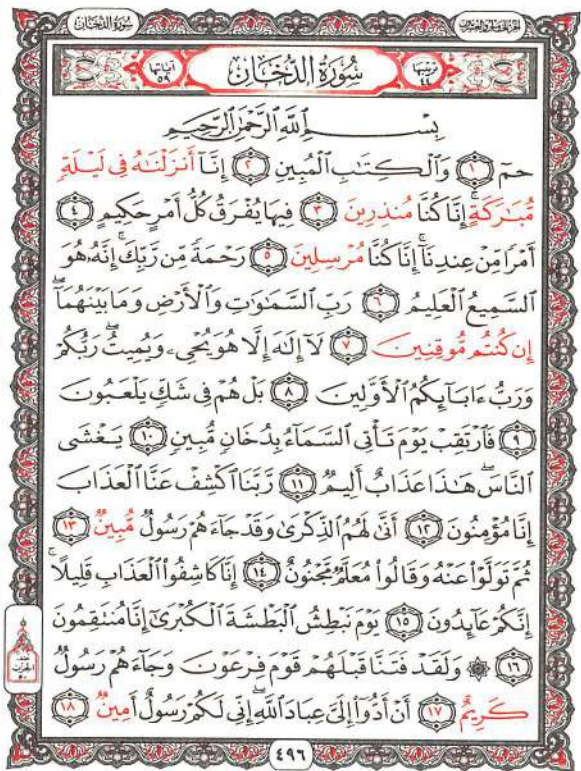 سُورَةُ الدُّخَانِ
سُورَةُ الدُّخَانِ
تَرْتِيبُهَا ٤٤
آيَاتُهَا ٥٩
بِسْمِ ٱللَّهِ ٱلرَّحْمَٰنِ ٱلرَّحِيمِ
حمٓ ١ وَٱلْكِتَٰبِ ٱلْمُبِينِ ٢ إِنَّآ أَنزَلْنَٰهُ فِى لَيْلَةٍ
مُّبَٰرَكَةٍ ۚ إِنَّا كُنَّا مُنذِرِينَ ٣ فِيهَا يُفْرَقُ كُلُّ أَمْرٍ حَكِيمٍ ٤
أَمْرًا مِّنْ عِندِنَآ ۚ إِنَّا كُنَّا مُرْسِلِينَ ٥ رَحْمَةً مِّن رَّبِّكَ ۚ إِنَّهُۥ هُوَ
ٱلسَّمِيعُ ٱلْعَلِيمُ ٦ رَبِّ ٱلسَّمَٰوَٰتِ وَٱلْأَرْضِ وَمَا بَيْنَهُمَآ ۖ
إِن كُنتُم مُّوقِنِينَ ٧ لَآ إِلَٰهَ إِلَّا هُوَ يُحْىِۦ وَيُمِيتُ ۖ رَبُّكُمْ
وَرَبُّ ءَابَآئِكُمُ ٱلْأَوَّلِينَ ٨ بَلْ هُمْ فِى شَكٍّ يَلْعَبُونَ
٩ فَٱرْتَقِبْ يَوْمَ تَأْتِى ٱلسَّمَآءُ بِدُخَانٍ مُّبِينٍ ١٠ يَغْشَى
ٱلنَّاسَ ۖ هَٰذَا عَذَابٌ أَلِيمٌ ١١ رَّبَّنَا ٱكْشِفْ عَنَّا ٱلْعَذَابَ
إِنَّا مُؤْمِنُونَ ١٢ أَنَّىٰ لَهُمُ ٱلذِّكْرَىٰ وَقَدْ جَآءَهُمْ رَسُولٌ مُّبِينٌ ١٣
ثُمَّ تَوَلَّوْا۟ عَنْهُ وَقَالُوا۟ مُعَلَّمٌ مَّجْنُونٌ ١٤ إِنَّا كَاشِفُوا۟ ٱلْعَذَابِ قَلِيلًا ۚ
إِنَّكُمْ عَآئِدُونَ ١٥ يَوْمَ نَبْطِشُ ٱلْبَطْشَةَ ٱلْكُبْرَىٰٓ إِنَّا مُنتَقِمُونَ
١٦ ۞ وَلَقَدْ فَتَنَّا قَبْلَهُمْ قَوْمَ فِرْعَوْنَ وَجَآءَهُمْ رَسُولٌ
كَرِيمٌ ١٧ أَنْ أَدُّوٓا۟ إِلَىَّ عِبَادَ ٱللَّهِ ۖ إِنِّى لَكُمْ رَسُولٌ أَمِينٌ ١٨
٤٩٦